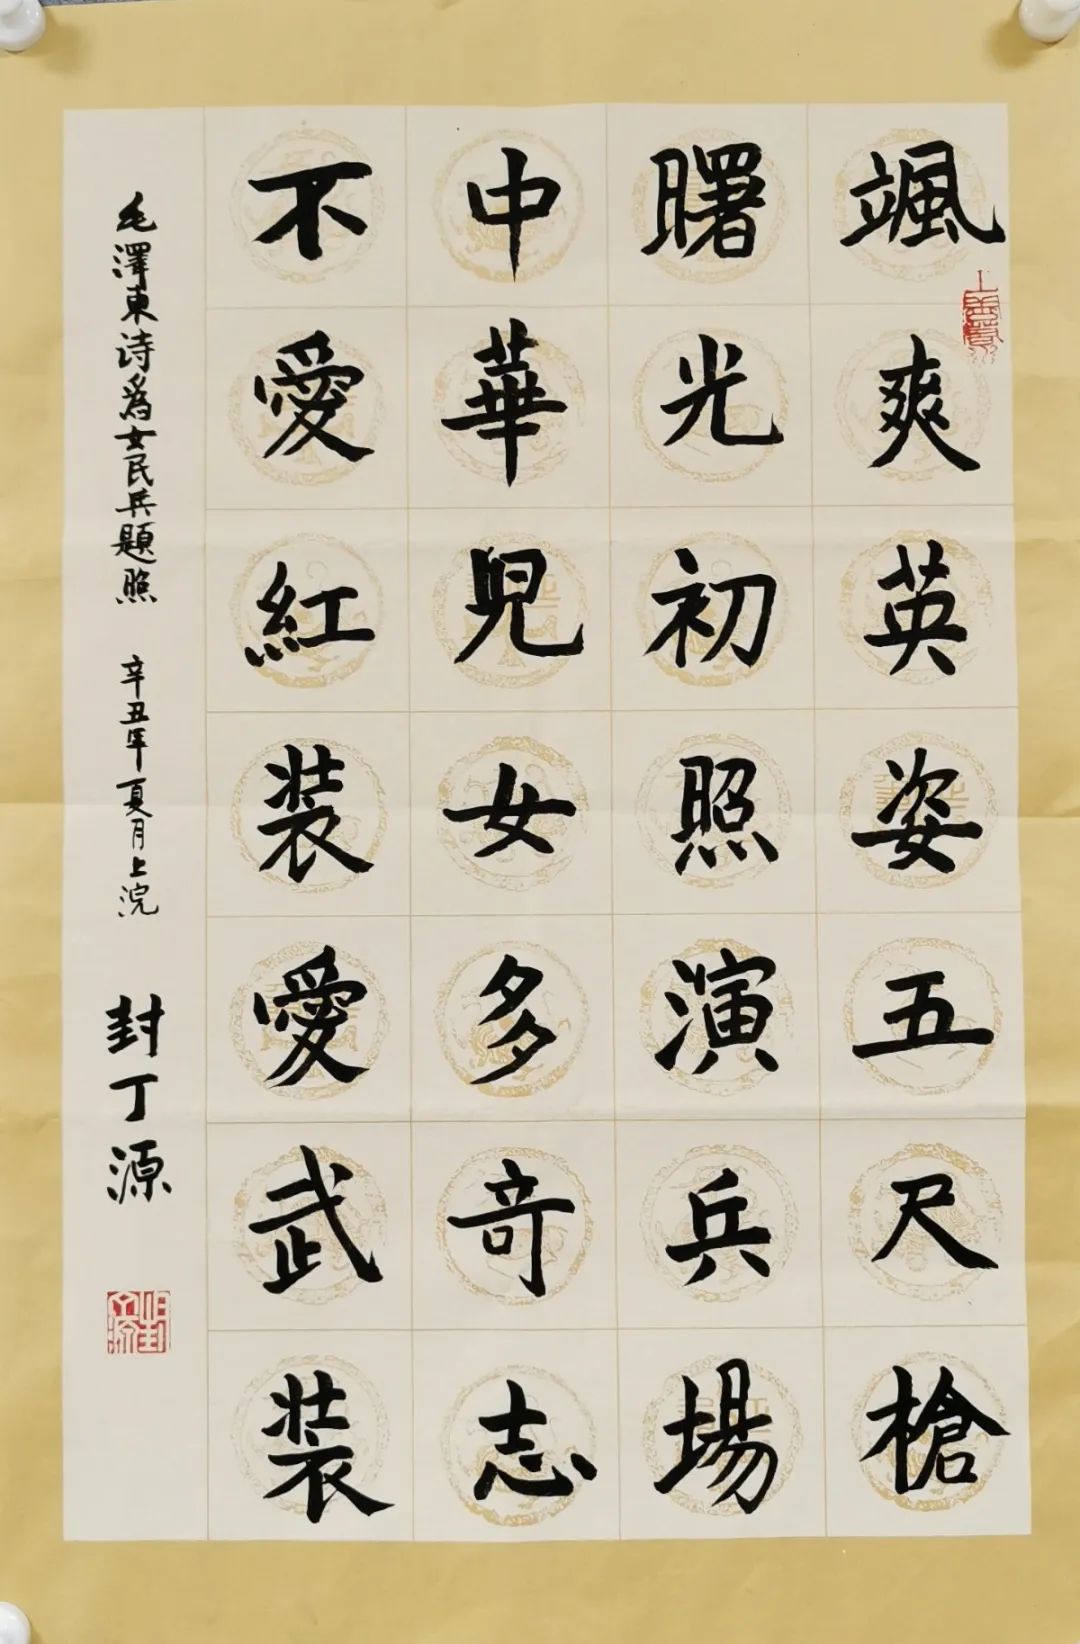 颯爽英姿五尺槍
曙光初照演兵場
中華兒女多奇志
不愛紅裝愛武裝
毛澤東诗為女民兵題照 辛丑年夏月上浣 封丁源